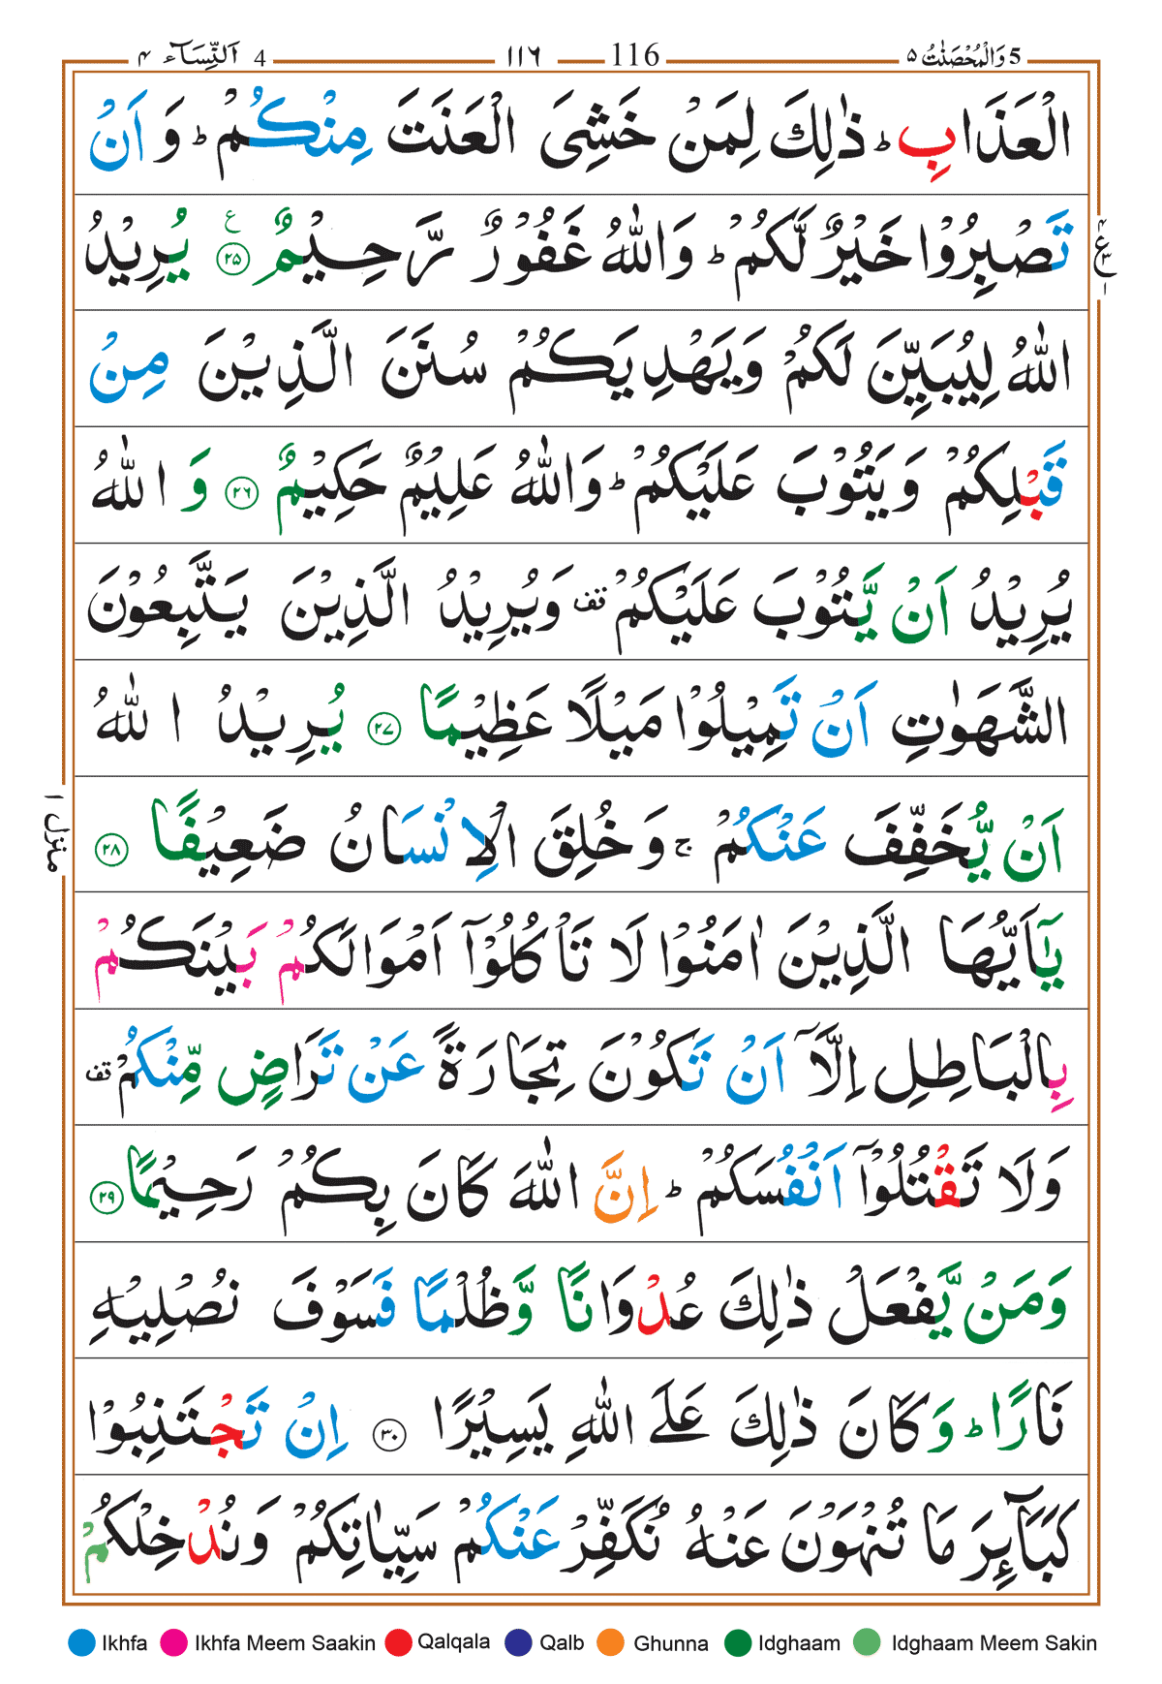 5 وَالْمُحْصَنٰتُ ۵ 116 ١١٦ 4 اَلنِّسَآء ۴
الْعَذَابِ ؕ ذٰلِكَ لِمَنْ خَشِیَ الْعَنَتَ مِنْكُمْ ؕ وَ اَنْ
تَصْبِرُوْا خَیْرٌ لَّكُمْ ؕ وَاللّٰهُ غَفُوْرٌ رَّحِیْمٌ ﴿۲۵﴾ ع یُرِیْدُ
اللّٰهُ لِیُبَیِّنَ لَكُمْ وَیَهْدِیَكُمْ سُنَنَ الَّذِیْنَ مِنْ
قَبْلِكُمْ وَیَتُوْبَ عَلَیْكُمْ ؕ وَاللّٰهُ عَلِیْمٌ حَكِیْمٌ ﴿۲۶﴾ وَ اللّٰهُ
یُرِیْدُ اَنْ یَّتُوْبَ عَلَیْكُمْ قف وَیُرِیْدُ الَّذِیْنَ یَتَّبِعُوْنَ
الشَّهَوٰتِ اَنْ تَمِیْلُوْا مَیْلًا عَظِیْمًا ﴿۲۷﴾ یُرِیْدُ اللّٰهُ
اَنْ یُّخَفِّفَ عَنْكُمْ ۚ وَخُلِقَ الْاِنْسَانُ ضَعِیْفًا ﴿۲۸﴾
یٰۤاَیُّهَا الَّذِیْنَ اٰمَنُوْا لَا تَاْكُلُوْۤا اَمْوَالَكُمْ بَیْنَكُمْ
بِالْبَاطِلِ اِلَّاۤ اَنْ تَكُوْنَ تِجَارَةً عَنْ تَرَاضٍ مِّنْكُمْ قف
وَلَا تَقْتُلُوْۤا اَنْفُسَكُمْ ؕ اِنَّ اللّٰهَ كَانَ بِكُمْ رَحِیْمًا ﴿۲۹﴾
وَمَنْ یَّفْعَلْ ذٰلِكَ عُدْوَانًا وَّظُلْمًا فَسَوْفَ نُصْلِیْهِ
نَارًا ؕ وَكَانَ ذٰلِكَ عَلَی اللّٰهِ یَسِیْرًا ﴿۳۰﴾ اِنْ تَجْتَنِبُوْا
كَبَآئِرَ مَا تُنْهَوْنَ عَنْهُ نُكَفِّرْ عَنْكُمْ سَیِّاٰتِكُمْ وَنُدْخِلْكُمْ
۴ ع ۳ ۱
منزل ۱
Ikhfa Ikhfa Meem Saakin Qalqala Qalb Ghunna Idghaam Idghaam Meem Sakin